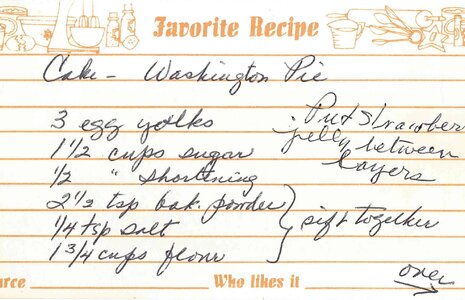 Favorite Recipe
Cake - Washington Pie
3 egg yolks
1 1/2 cups sugar
1/2 " shortening
2 1/2 tsp bak. powder
1/4 tsp salt
1 3/4 cups flour
sift together
Put Strawber
jelly between
layers
over
rce
Who likes it